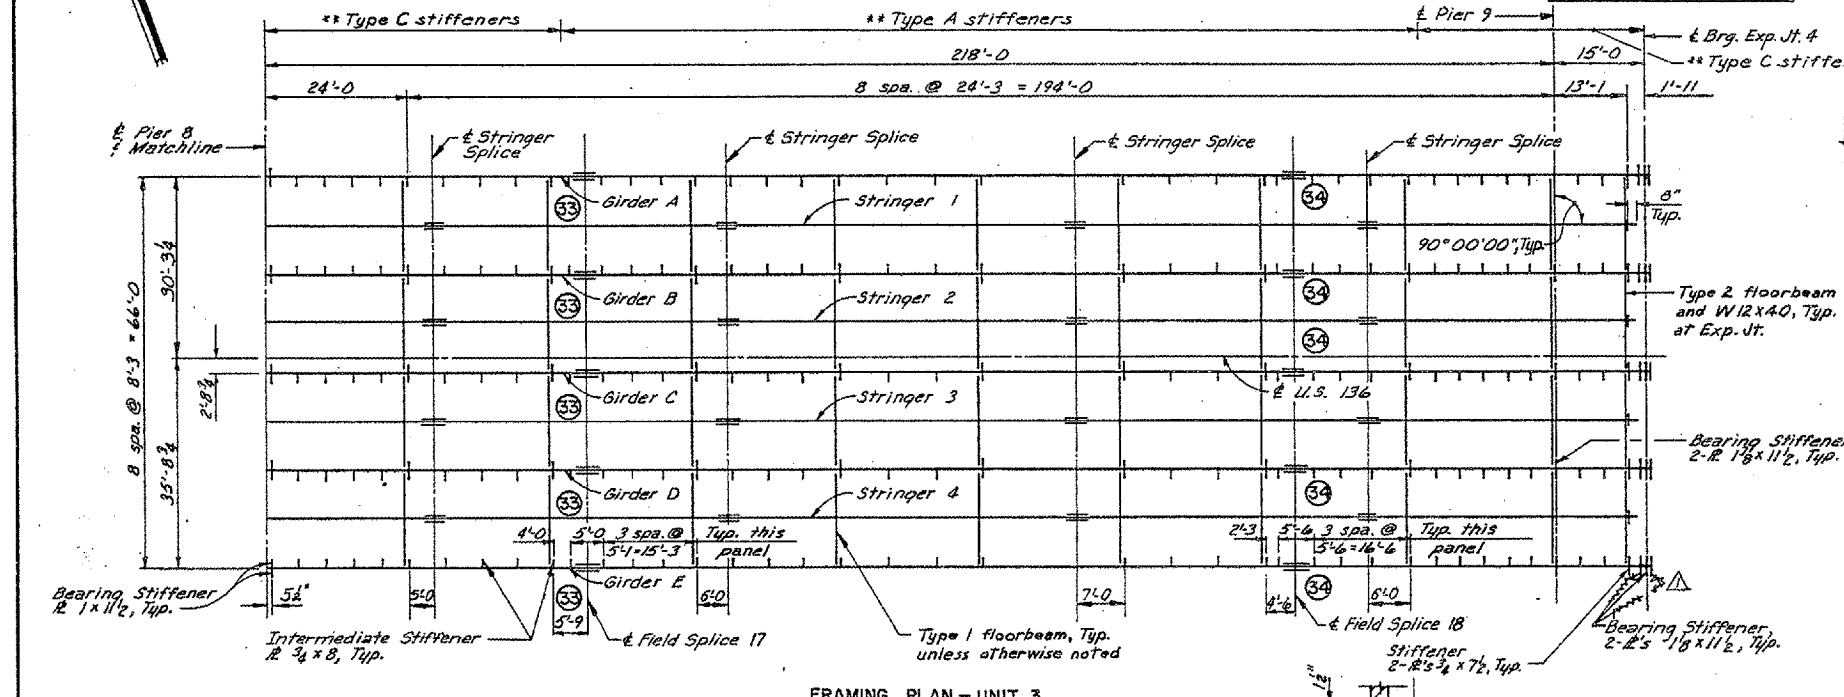 ** Type C stiffeners
** Type A stiffeners
℄ Pier 9
℄ Brg. Exp. Jt. 4
218'-0
15'-0
** Type C stiffe
24'-0
8 spa. @ 24'-3 = 194'-0
13'-1
1'-11
℄ Pier 8
Matchline
℄ Stringer
Splice
℄ Stringer Splice
℄ Stringer Splice
℄ Stringer Splice
33
Girder A
Stringer 1
34
8"
Typ.
90°00'00", Typ.
8 spa. @ 8'-3 = 66'-0
Girder B
33
Stringer 2
34
34
Type 2 floorbeam
and W12x40, Typ.
at Exp. Jt.
2'-8 3/4
35'-8 3/4
℄ U.S. 136
Girder C
33
Stringer 3
Bearing Stiffene
2-℄ 1 1/8 x 11 1/2, Typ.
Girder D
33
Stringer 4
34
4'-0
5'-0
3 spa. @
5'-1=15'-3
Typ. this
panel
2'-3
5'-6
3 spa. @
5'-6=16'-6
Typ. this
panel
Bearing Stiffener
℄ 1 x 11 1/2, Typ.
5 1/2"
5'-0
33
Girder E
6'-0
7'-0
34
4'-6
6'-0
1
5'-9
Intermediate Stiffener
℄ 3/4 x 8, Typ.
℄ Field Splice 17
Type 1 floorbeam, Typ.
unless otherwise noted
℄ Field Splice 18
Stiffener
2-℄'s 3/4 x 7 1/2, Typ.
Bearing Stiffener,
2-℄'s 1 1/8 x 11 1/2, Typ.
FRAMING PLAN - UNIT 3